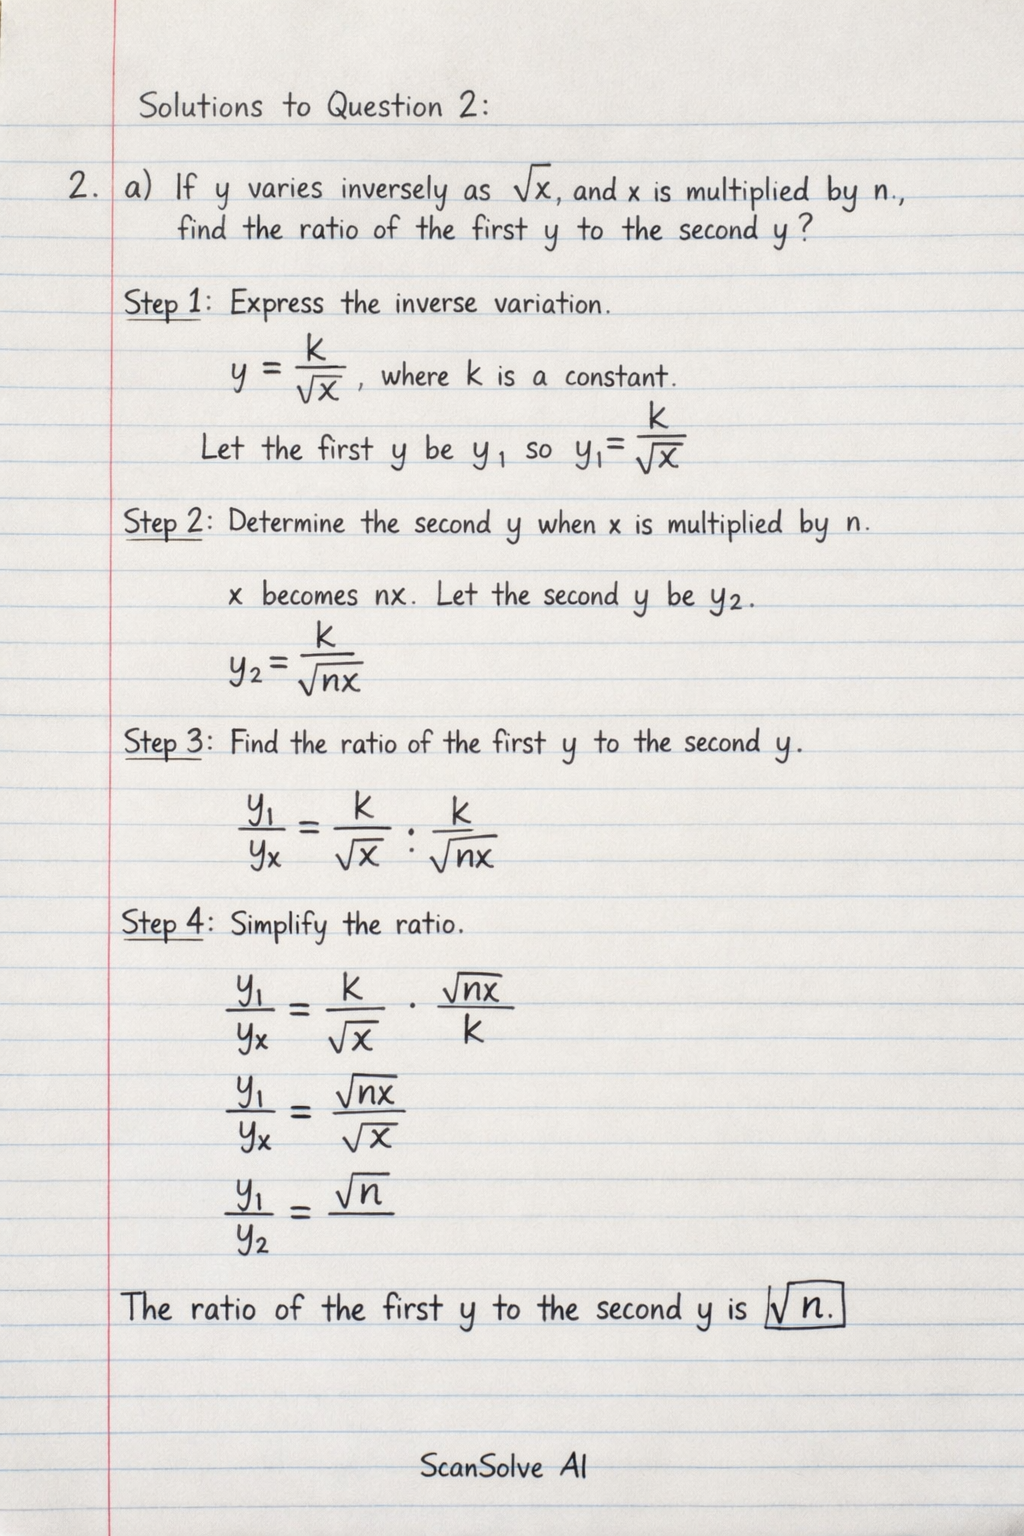 Solutions to Question 2:
2. a) If y varies inversely as √x, and x is multiplied by n.,
find the ratio of the first y to the second y?
Step 1: Express the inverse variation.
y = k/√x, where k is a constant.
Let the first y be y₁ so y₁ = k/√x
Step 2: Determine the second y when x is multiplied by n.
x becomes nx. Let the second y be y₂.
y₂ = k/√nx
Step 3: Find the ratio of the first y to the second y.
y₁/yx = k/√x : k/√nx
Step 4: Simplify the ratio.
y₁/yx = k/√x · √nx/k
y₁/yx = √nx/√x
y₁/y₂ = √n
The ratio of the first y to the second y is √n.
ScanSolve AI